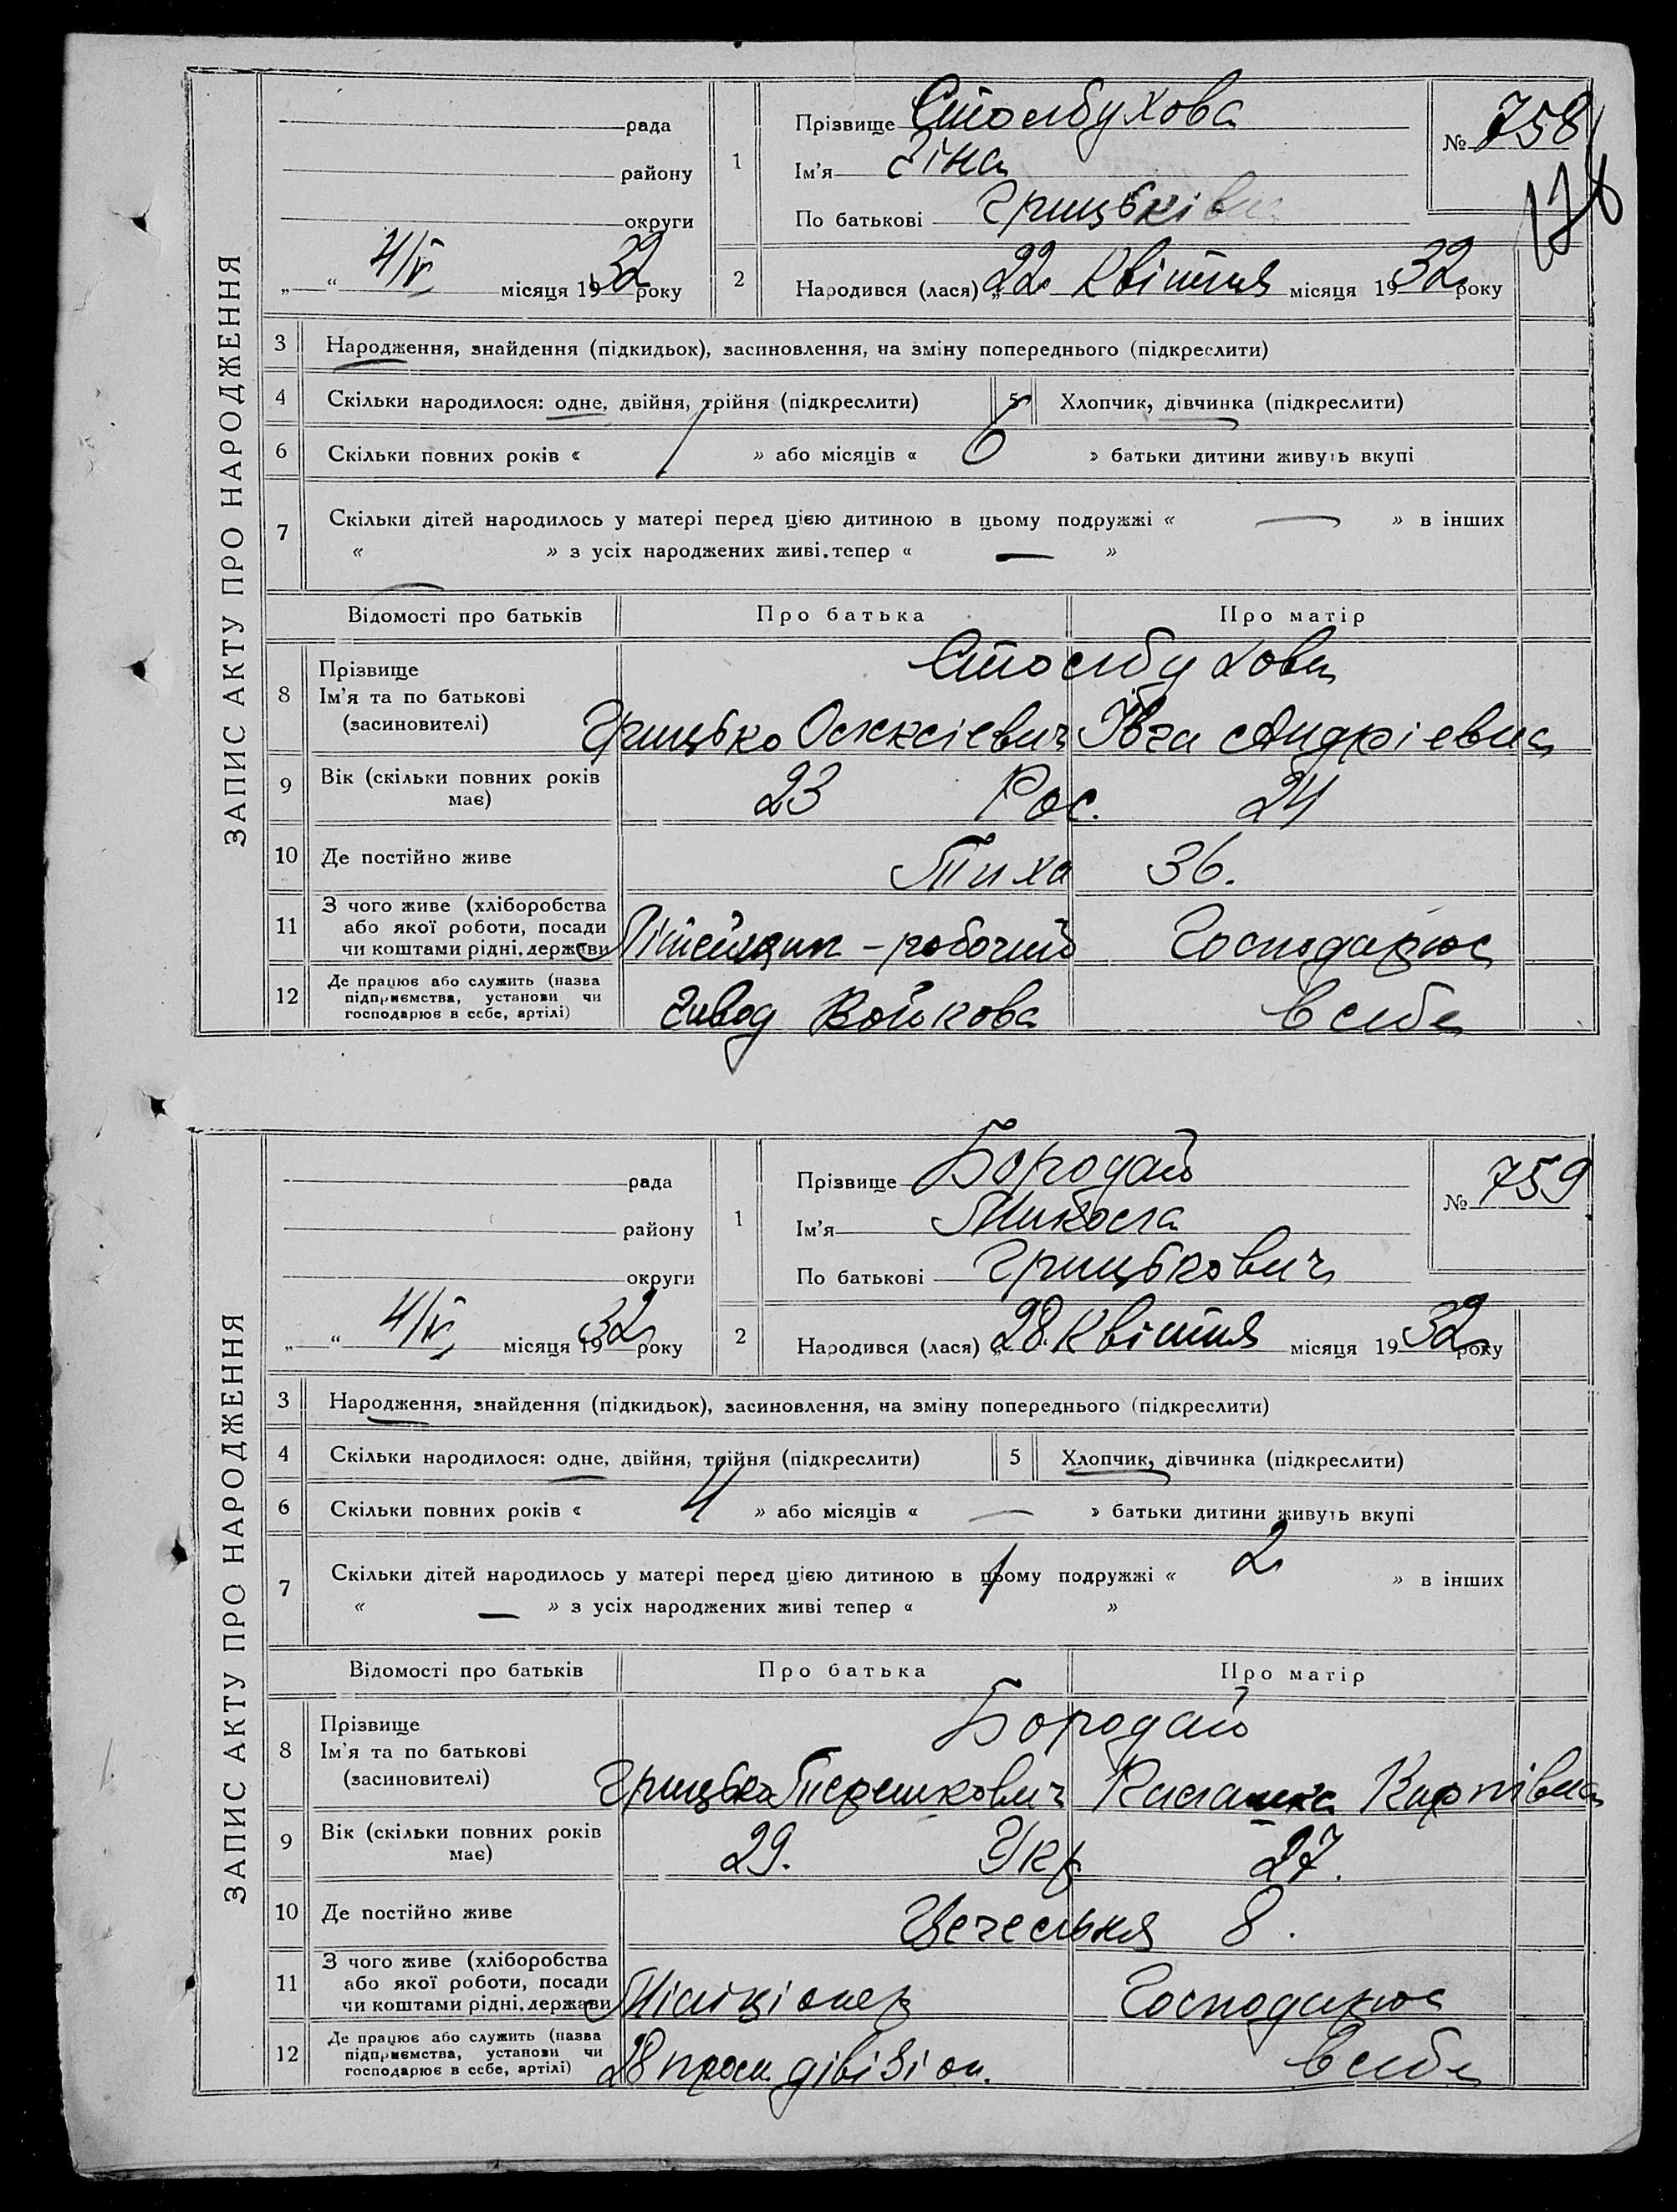 ЗАПИС АКТУ ПРО НАРОДЖЕННЯ
рада
району
округи
„ “ 4/V місяця 1932 року
1 Прізвище Столбухова
Ім'я Зіна
По батькові Грицьківна
№ 758
178
2 Народився (лася) „22 Квітня місяця 1932 року
3 Народження, знайдення (підкидьок), засиновлення, на зміну попереднього (підкреслити)
4 Скільки народилося: одне, двійня, трійня (підкреслити) 5 Хлопчик, дівчинка (підкреслити)
6 Скільки повних років « / » або місяців « 6 » батьки дитини живуть вкупі
7 Скільки дітей народилось у матері перед цією дитиною в цьому подружжі « — » в інших
« — » з усіх народжених живі тепер « — »
Відомості про батьків Про батька Про матір
8 Прізвище Столбухови
Ім'я та по батькові
(засиновителі) Грицько Олексієвич Ївга Андрієвна
9 Вік (скільки повних років має) 23 Рос. 24
10 Де постійно живе Тиха 36.
11 З чого живе (хліборобства або якої роботи, посади чи коштами рідні, держави) Літейщик – робочий Господарює
12 Де працює або служить (назва підприємства, установи чи господарює в себе, артілі) Завод Войкова в себе
ЗАПИС АКТУ ПРО НАРОДЖЕННЯ
рада
району
округи
„ “ 4/V місяця 1932 року
1 Прізвище Бородай
Ім'я Микола
По батькові Грицькович
№ 759
2 Народився (лася) „28 Квітня місяця 1932 року
3 Народження, знайдення (підкидьок), засиновлення, на зміну попереднього (підкреслити)
4 Скільки народилося: одне, двійня, трійня (підкреслити) 5 Хлопчик, дівчинка (підкреслити)
6 Скільки повних років « 4 » або місяців « — » батьки дитини живуть вкупі
7 Скільки дітей народилось у матері перед цією дитиною в цьому подружжі « 2 » в інших
« — » з усіх народжених живі тепер « 1 »
Відомості про батьків Про батька Про матір
8 Прізвище Бородай
Ім'я та по батькові
(засиновителі) Грицько Терешкович Карпівна
9 Вік (скільки повних років має) 29. Укр 27.
10 Де постійно живе 8.
11 З чого живе (хліборобства або якої роботи, посади чи коштами рідні, держави) Міліціонер Господарює
12 Де працює або служить (назва підприємства, установи чи господарює в себе, артілі) 28 дівізіон. в себе